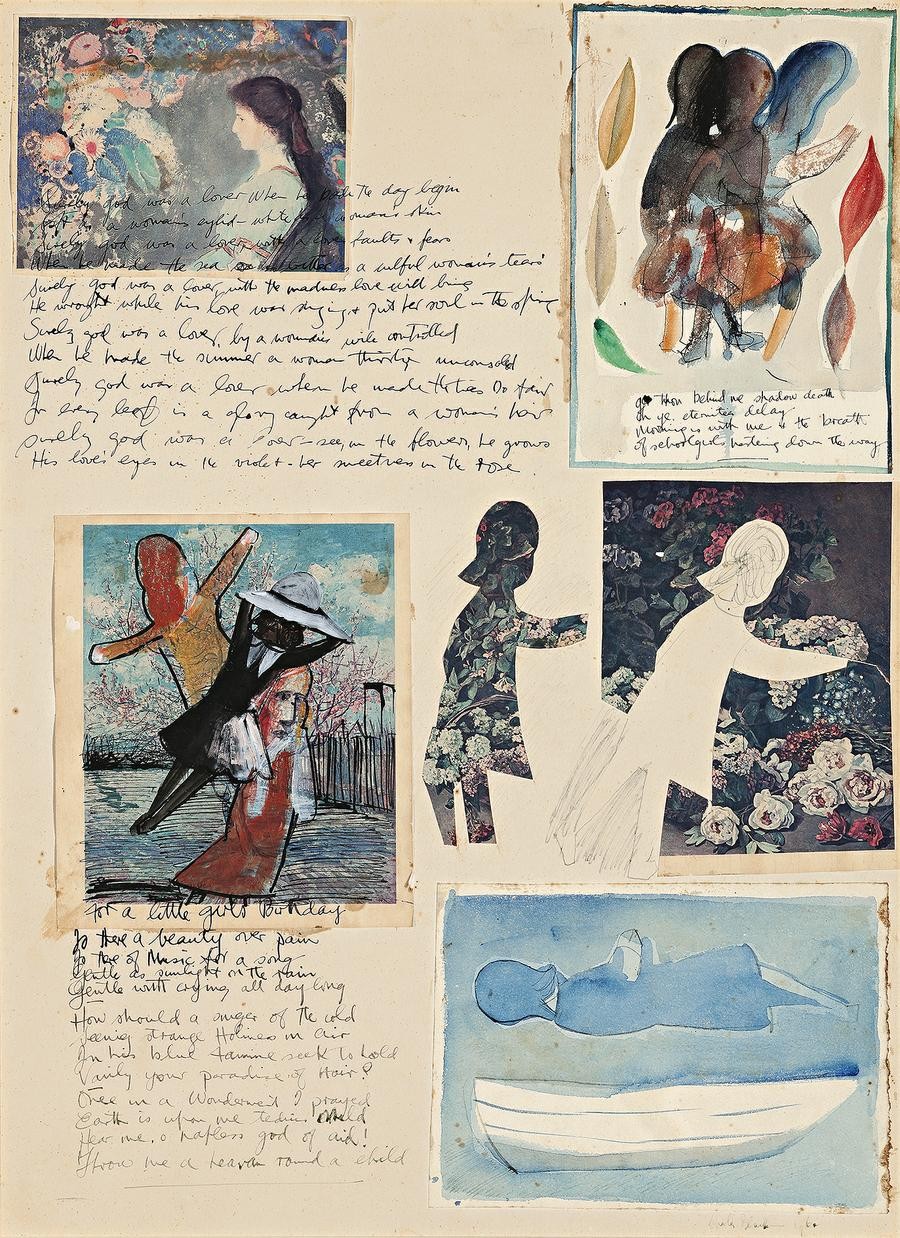 Surely god was a lover when he bade the day begin
Soft as a woman's eyelid - white as a woman's skin
Surely god was a lover with a lover's faults & fears
When he made the sea as bitter as a wilful woman's tears
Surely god was a lover with the madness love will bring
He wrought while his love was singing & put her soul in the spring
Surely god was a lover, by a woman's wile controlled
When he made the summer a woman thirsty unconsoled
Surely god was a lover when he made the trees so fair
In every leaf is a glory caught from a woman's hair
Surely god was a lover - see, in the flowers, he grows
His love's eyes in the violet - her sweetness in the rose
go thou behind me shadow death
oh ye eternities delay
Morning is with me & the breath
of schoolgirls hastening down the way
For a little girls Birthday
Is there a beauty over pain
Is there of Music for a song
Gentle as sunlight on the rain
Gentle with crying all day long
How should a singer of the cold
Seeing strange Holiness in air
In his blue famine seek to hold
Vainly your paradise of Hair?
Once in a Wonderment I prayed
Earth is upon me tedious
Hear me, o hapless god of aid!
Throw me a heaven round a child